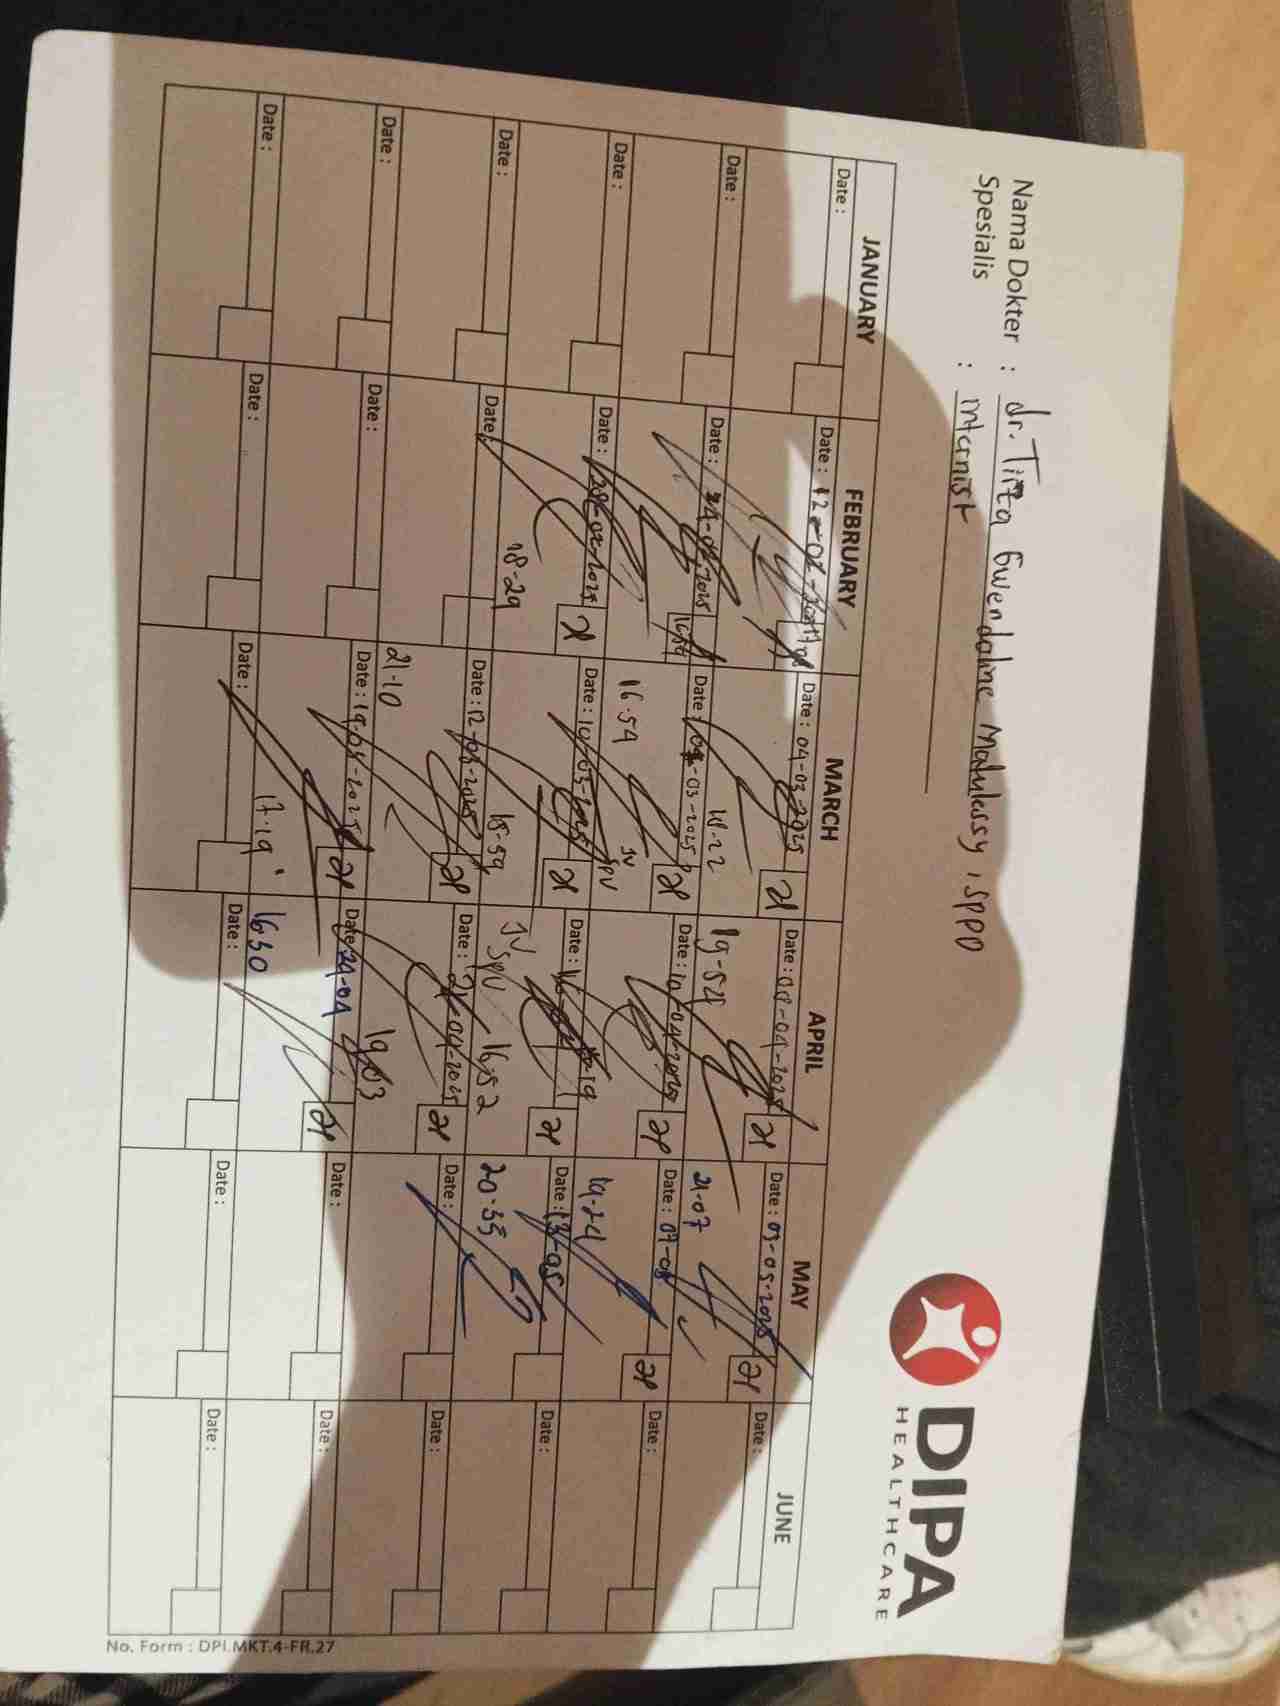 DIPA
HEALTHCARE
Nama Dokter : dr. Tirza Gwendoline Matulessy, SPPD
Spesialis : Internist
JANUARY FEBRUARY MARCH APRIL MAY JUNE
Date : Date : 12-02-2025 Date : 04-03-2025 Date : 08-04-2025 Date : 03-05-2025 Date :
18-22 19-54 21-07
Date : Date : 24-02-2025 Date : 07-03-2025 Date : 10-04-2025 Date : 07-05 Date :
16.54 JV SPV 19-24
Date : Date : 28-02-2025 Date : 10-03-2025 Date : 16 Date : 13-05 Date :
18-29 18-59 JV SPV 16.52 20-35
Date : Date : Date : 12-03-2025 Date : 21-04-2025 Date : Date :
21-10 19.03
Date : Date : Date : 19-03-2025 Date : 24-04 Date : Date :
17.19 1630
Date : Date : Date : Date : Date : Date :
No. Form : DPI.MKT.4-FR.27